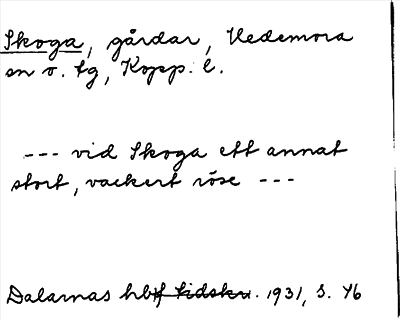 Skoga, gårdar, Hedemora
sn o. tg, Kopp. l.
--- vid Skoga ett annat
stort, vackert röse ---
Dalarnas hbf tidskr. 1931, s. 46